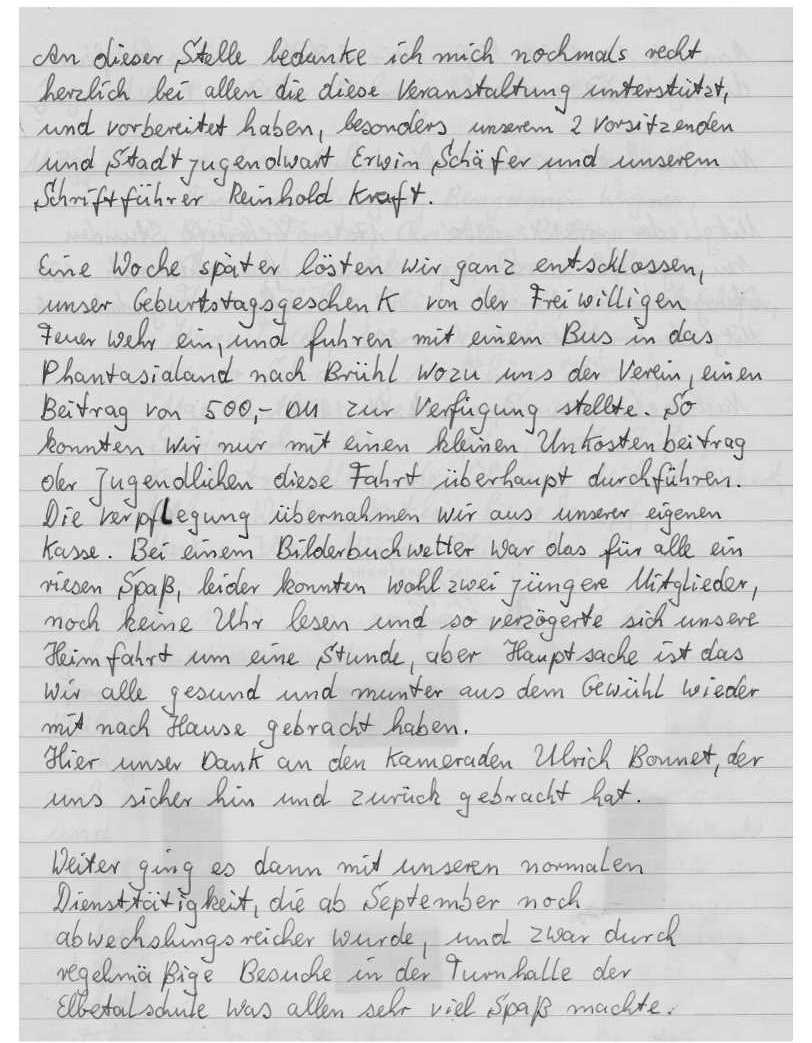 An dieser Stelle bedanke ich mich nochmals recht
herzlich bei allen die diese Veranstaltung unterstützt,
und vorbereitet haben, besonders unserem 2 Vorsitzenden
und Stadtjugendwart Erwin Schäfer und unserem
Schriftführer Reinhold Kraft.
Eine Woche später lösten wir ganz entschlossen,
unser Geburtstagsgeschenk von der Freiwilligen
Feuerwehr ein, und fuhren mit einem Bus in das
Phantasialand nach Brühl wozu uns der Verein, einen
Beitrag von 500,- DM zur Verfügung stellte. So
konnten wir nur mit einen kleinen Unkostenbeitrag
der Jugendlichen diese Fahrt überhaupt durchführen.
Die Verpflegung übernahmen wir aus unserer eigenen
Kasse. Bei einem Bilderbuchwetter war das für alle ein
riesen Spaß, leider konnten wohl zwei jüngere Mitglieder,
noch keine Uhr lesen und so verzögerte sich unsere
Heimfahrt um eine Stunde, aber Hauptsache ist das
wir alle gesund und munter aus dem Gewühl wieder
mit nach Hause gebracht haben.
Hier unser Dank an den Kameraden Ulrich Bonnet, der
uns sicher hin und zurück gebracht hat.
Weiter ging es dann mit unseren normalen
Diensttätigkeit, die ab September noch
abwechslungsreicher wurde, und zwar durch
regelmäßige Besuche in der Turnhalle der
Elbetalschule was allen sehr viel Spaß machte.